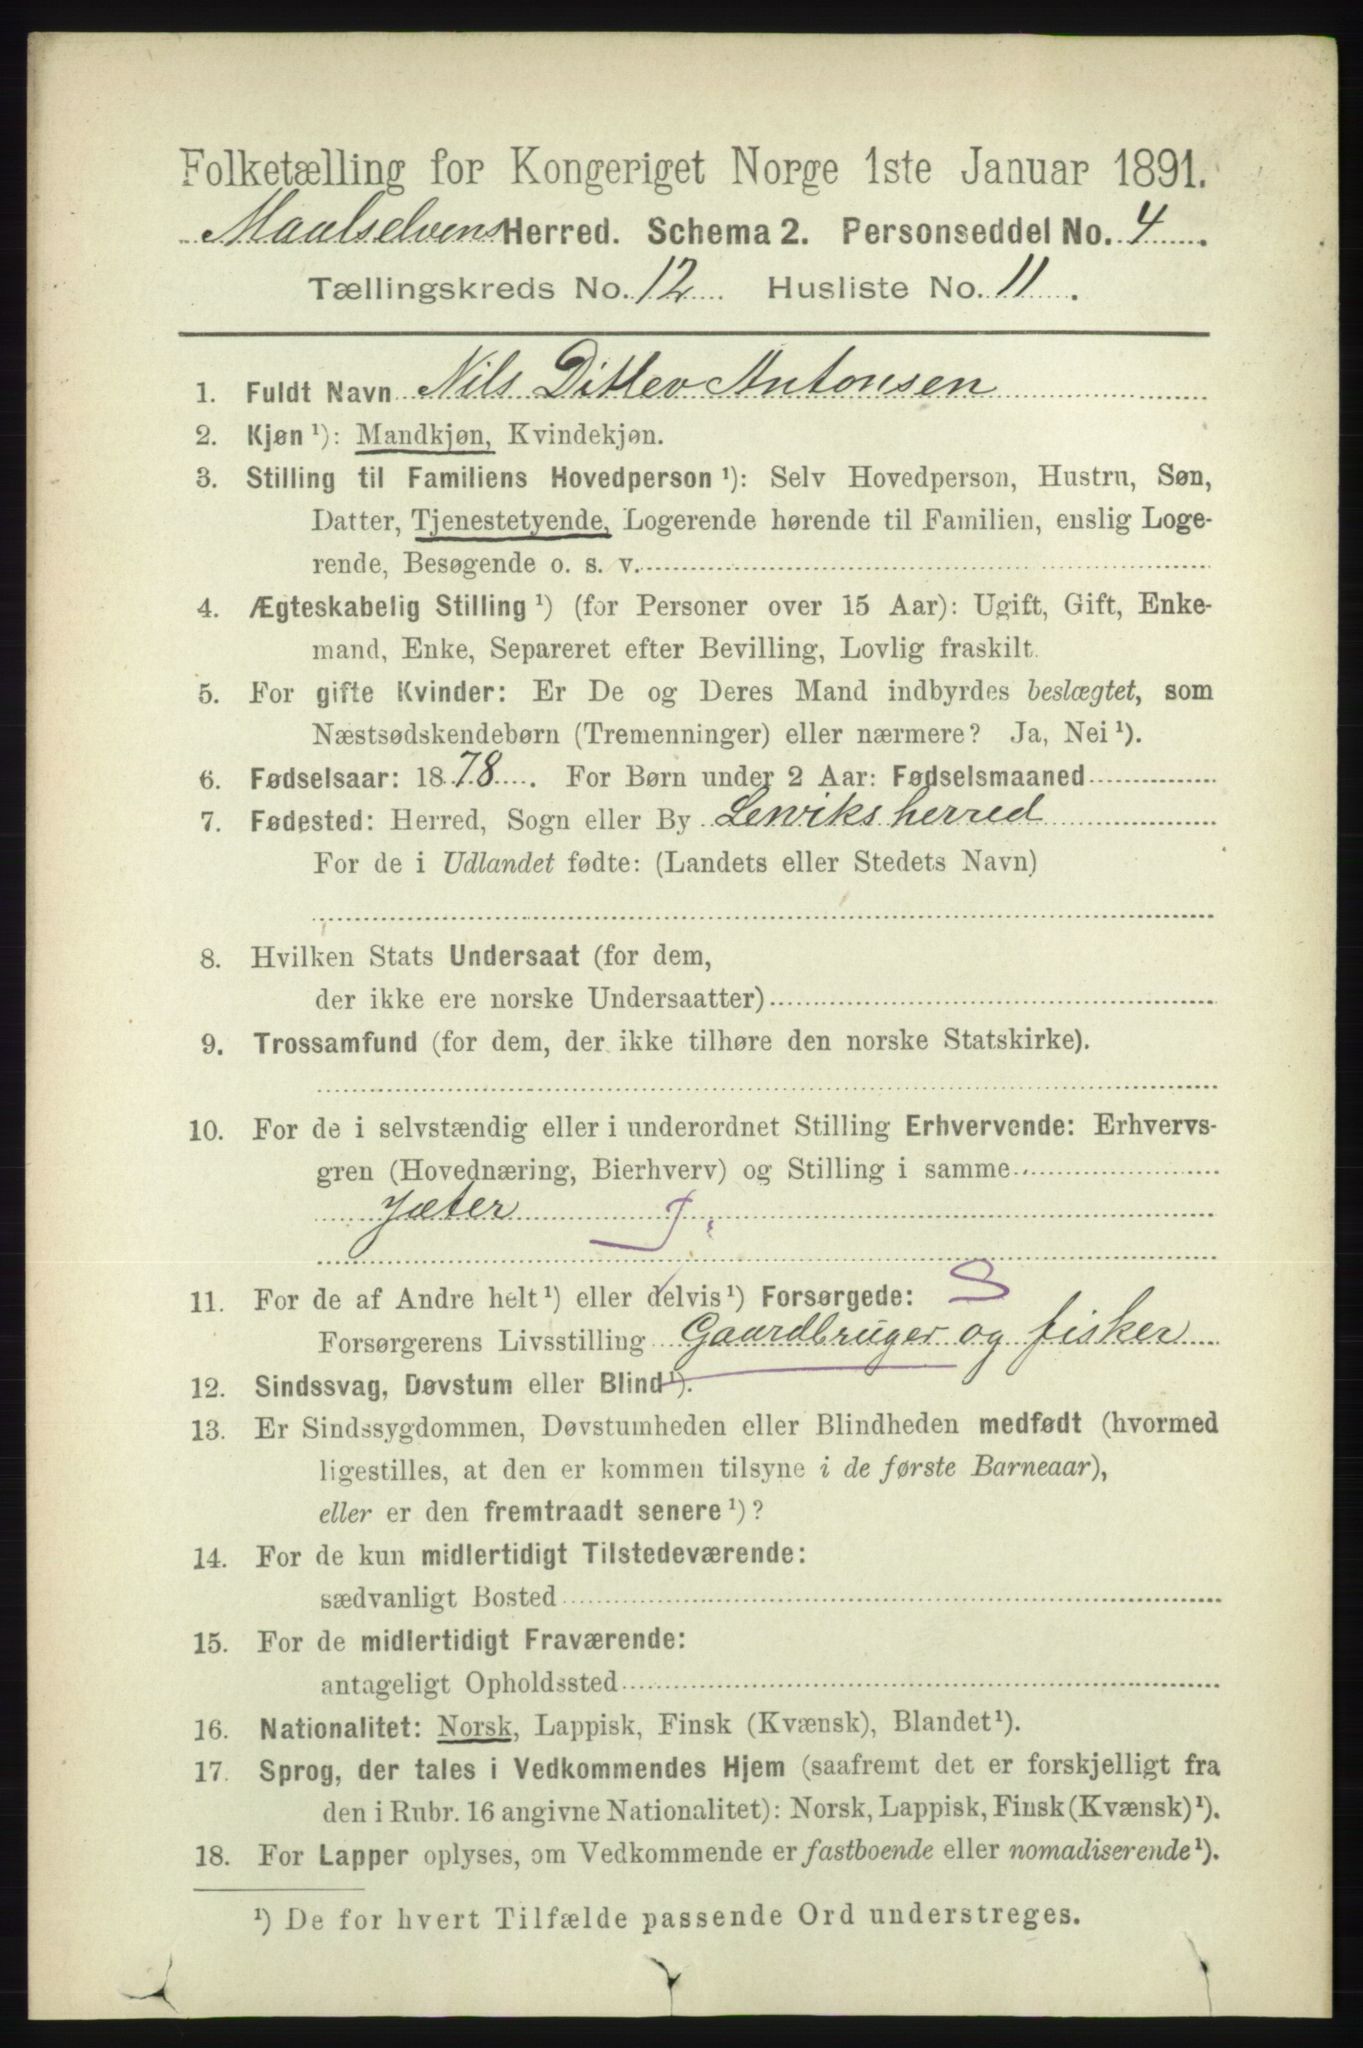 Folketælling for Kongeriget Norge 1ste Januar 1891.
Maalselvens Herred. Schema 2. Personseddel No. 4
Tællingskreds No. 12 Husliste No. 11
1. Fuldt Navn Nils Ditlev Antonsen
2. Kjøn ¹): Mandkjøn, Kvindekjøn.
3. Stilling til Familiens Hovedperson ¹): Selv Hovedperson, Hustru, Søn,
Datter, Tjenestetyende, Logerende hørende til Familien, enslig Loge-
rende, Besøgende o. s. v.
4. Ægteskabelig Stilling ¹) (for Personer over 15 Aar): Ugift, Gift, Enke-
mand, Enke, Separeret efter Bevilling, Lovlig fraskilt.
5. For gifte Kvinder: Er De og Deres Mand indbyrdes beslægtet, som
Næstsødskendebørn (Tremenninger) eller nærmere? Ja, Nei ¹).
6. Fødselsaar: 1878. For Børn under 2 Aar: Fødselsmaaned
7. Fødested: Herred, Sogn eller By Lenviks herred
For de i Udlandet fødte: (Landets eller Stedets Navn)
8. Hvilken Stats Undersaat (for dem,
der ikke ere norske Undersaatter)
9. Trossamfund (for dem, der ikke tilhøre den norske Statskirke).
10. For de i selvstændig eller i underordnet Stilling Erhvervende: Erhvervs-
gren (Hovednæring, Bierhverv) og Stilling i samme
Jæter
11. For de af Andre helt ¹) eller delvis ¹) Forsørgede: S
Forsørgerens Livsstilling Gaardbruger og fisker
12. Sindssvag, Døvstum eller Blind ¹).
13. Er Sindssygdommen, Døvstumheden eller Blindheden medfødt (hvormed
ligestilles, at den er kommen tilsyne i de første Barneaar),
eller er den fremtraadt senere ¹)?
14. For de kun midlertidigt Tilstedeværende:
sædvanligt Bosted
15. For de midlertidigt Fraværende:
antageligt Opholdssted
16. Nationalitet: Norsk, Lappisk, Finsk (Kvænsk), Blandet ¹).
17. Sprog, der tales i Vedkommendes Hjem (saafremt det er forskjelligt fra
den i Rubr. 16 angivne Nationalitet): Norsk, Lappisk, Finsk (Kvænsk) ¹).
18. For Lapper oplyses, om Vedkommende er fastboende eller nomadiserende ¹).
¹) De for hvert Tilfælde passende Ord understreges.